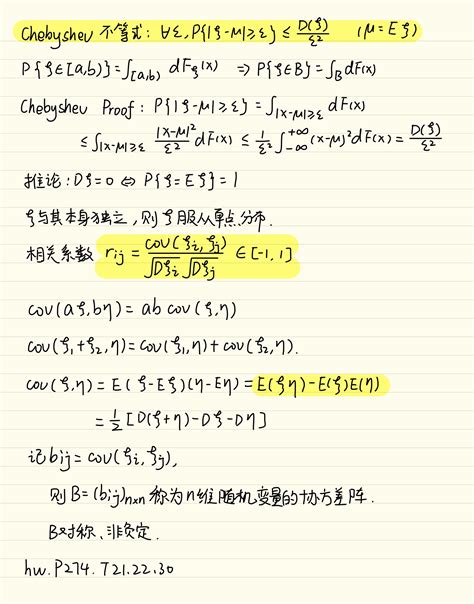 Chebyshev 不等式: ∀ε, P{|ξ-μ|≥ε} ≤ D(ξ)/ε² (μ=Eξ)
P{ξ∈[a,b)} = ∫[a,b) dFξ(x) ⇒ P{ξ∈B} = ∫B dF(x)
Chebyshev Proof: P{|ξ-μ|≥ε} = ∫|x-μ|≥ε dF(x)
≤ ∫|x-μ|≥ε |x-μ|²/ε² dF(x) ≤ 1/ε² ∫-∞+∞ (x-μ)² dF(x) = D(ξ)/ε²
推论: Dξ=0 ⇔ P{ξ=Eξ}=1
ξ与其本身独立, 则ξ服从单点分布.
相关系数 rij = cov(ξi, ξj)/√Dξi √Dξj ∈ [-1, 1]
cov(aξ, bη) = ab cov(ξ, η)
cov(ξ1+ξ2, η) = cov(ξ1, η) + cov(ξ2, η).
cov(ξ, η) = E(ξ-Eξ)(η-Eη) = E(ξη)-E(ξ)E(η)
= 1/2 [D(ξ+η)-Dξ-Dη]
记 bij = cov(ξi, ξj),
则 B=(bij)n×n 称为n维随机变量的协方差阵.
B对称、非负定.
hw. P274. T21. 22. 30